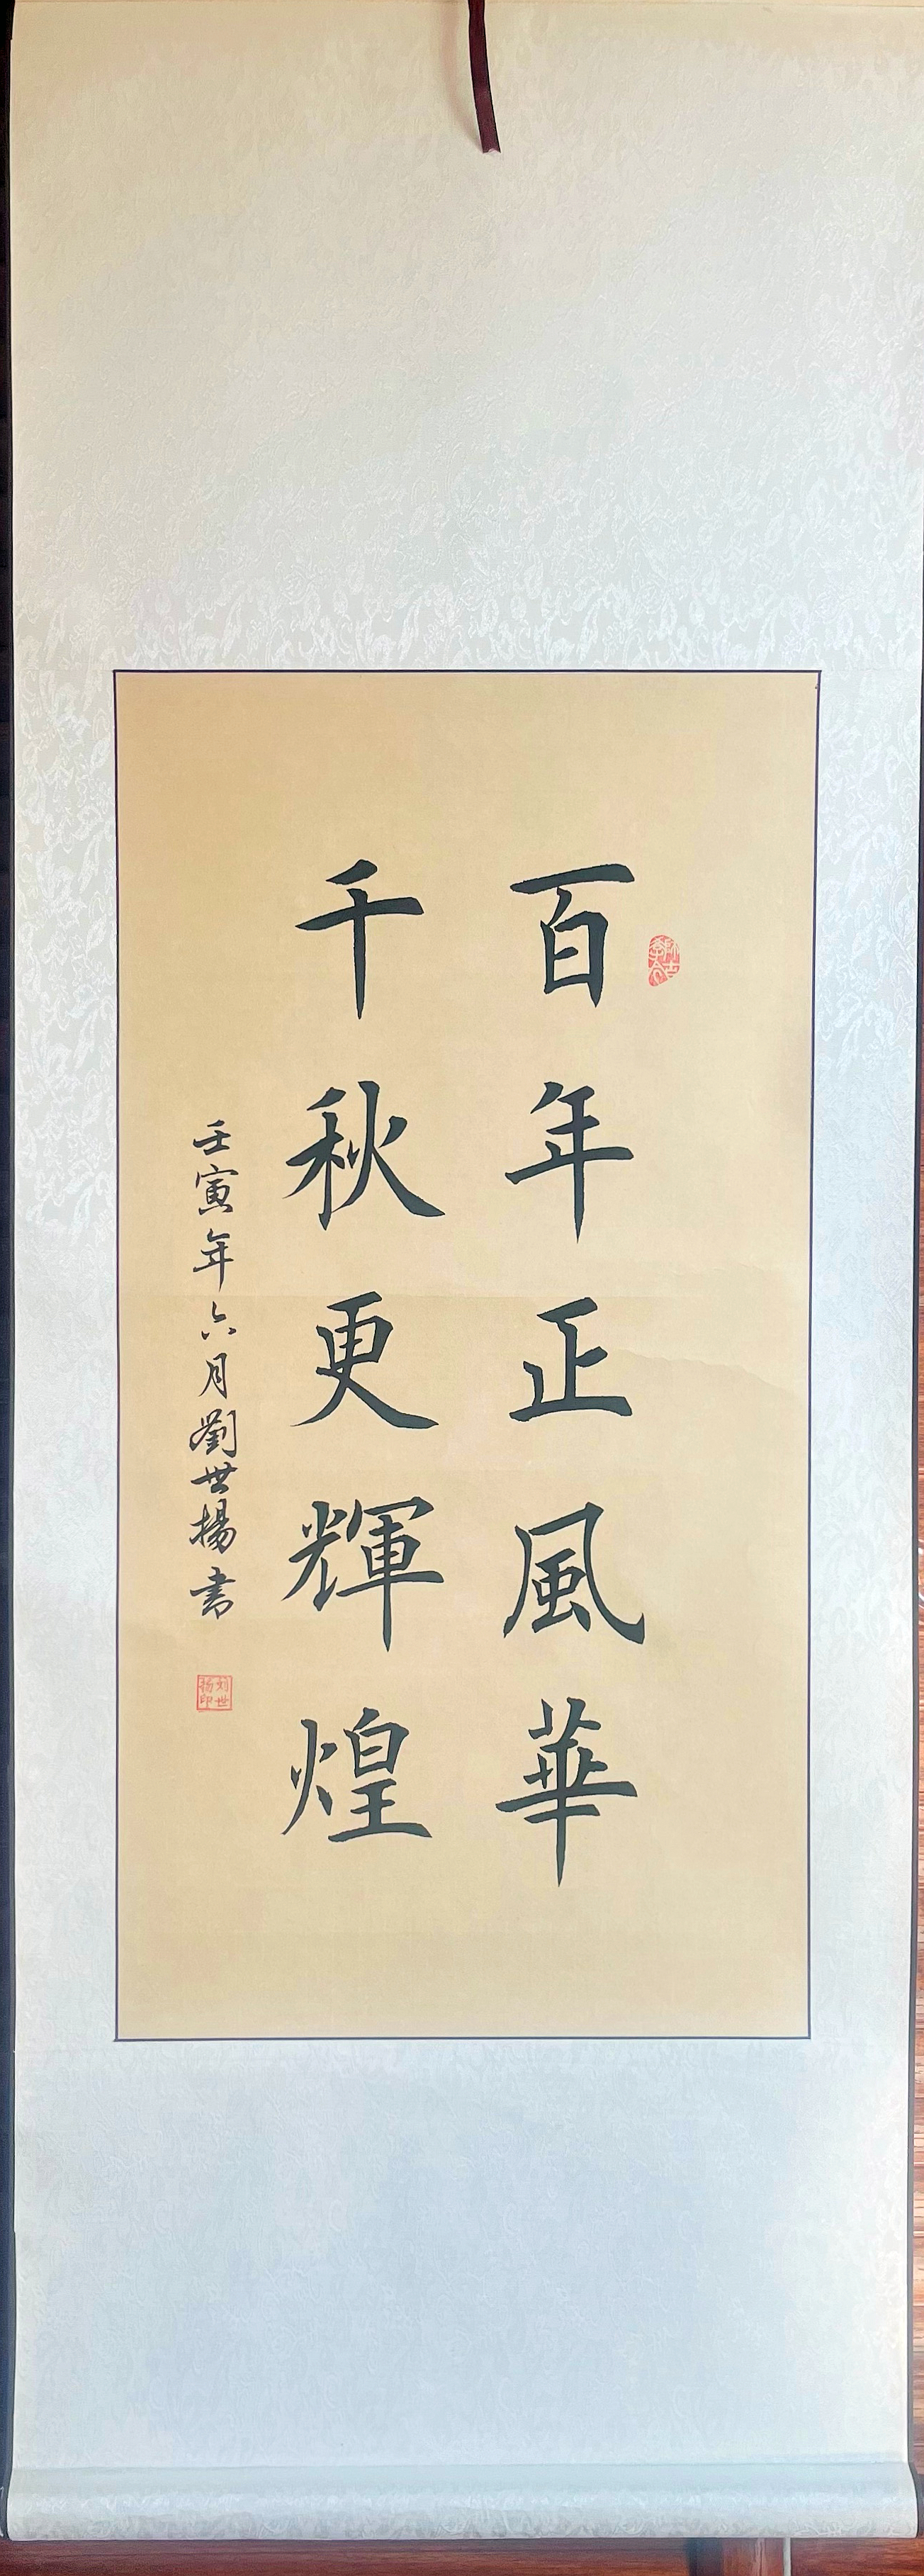 百年正風華
千秋更輝煌
壬寅年六月劉世揚書
刘世扬印